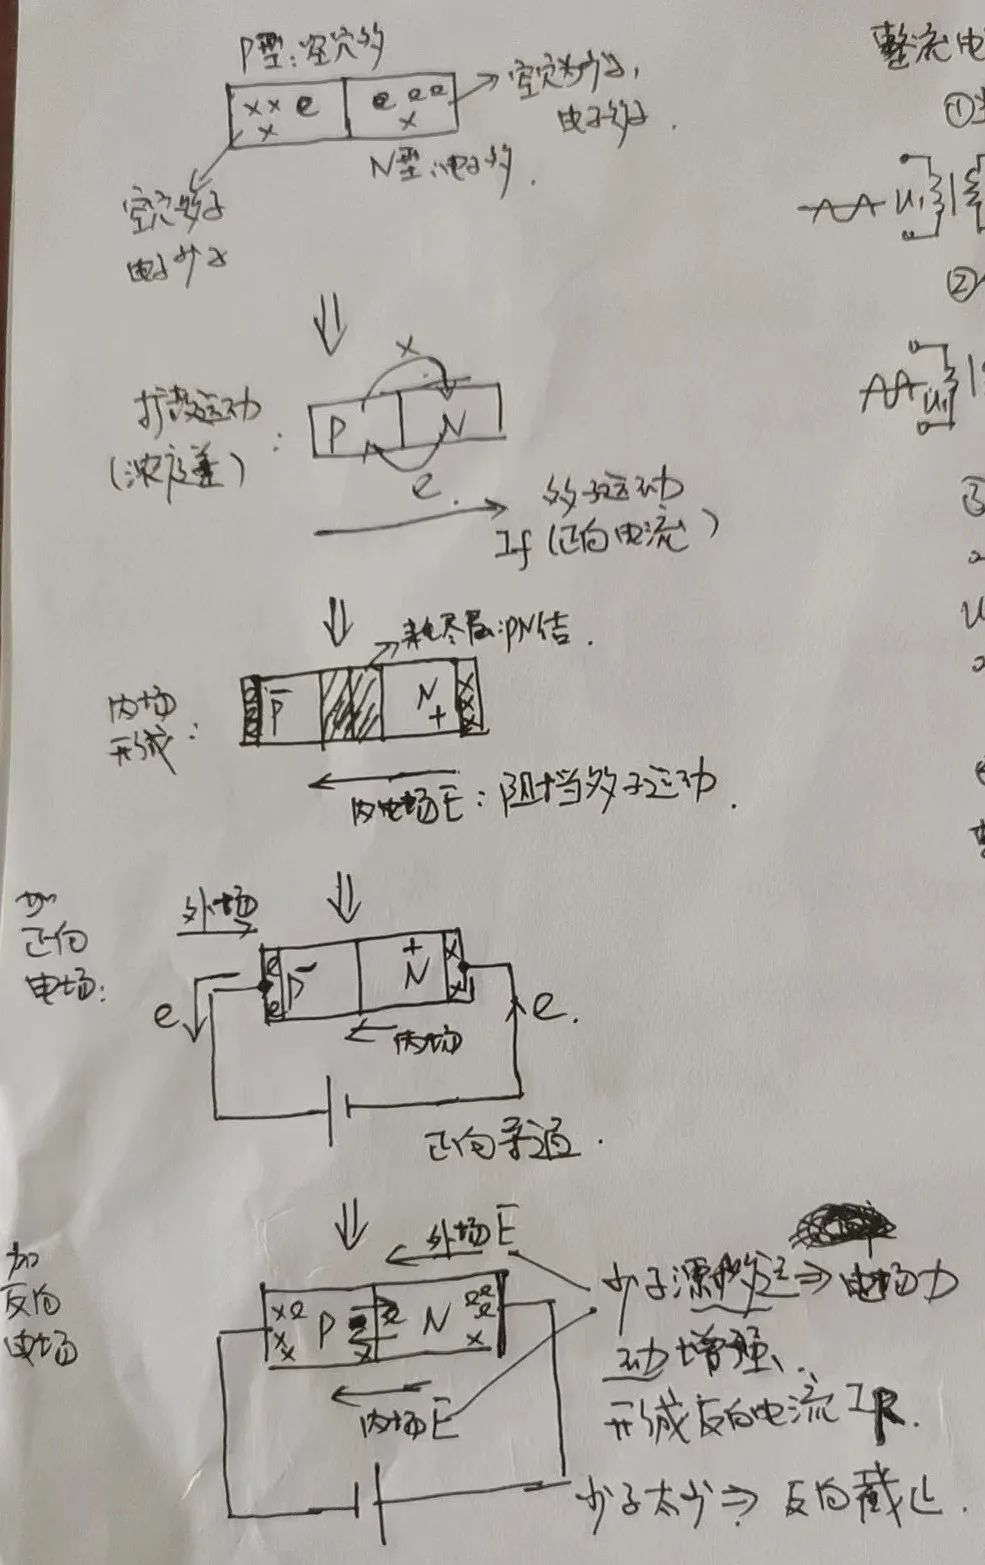 P型:空穴多
x x e
x
e e e
x
空穴为少子,
电子多子.
N型:电子多.
空穴多子
电子少子
整流电
①
U₁
②
U₁
③
U
x
扩散运动
(浓度差):
P N
e.
多子运动
If (正向电流)
耗尽层:PN结.
内场
形成:
P - N +
x x x
内电场E:阻挡多子运动.
加
正向
电场:
外场
e e
P - + N
x x
e
e.
内场
正向导通.
加
反向
电场
外场E
x e
x x
P N
e e
e
x
内场E
少子漂移运⇒电场力
动增强、
形成反向电流IR.
少子太少⇒反向截止.